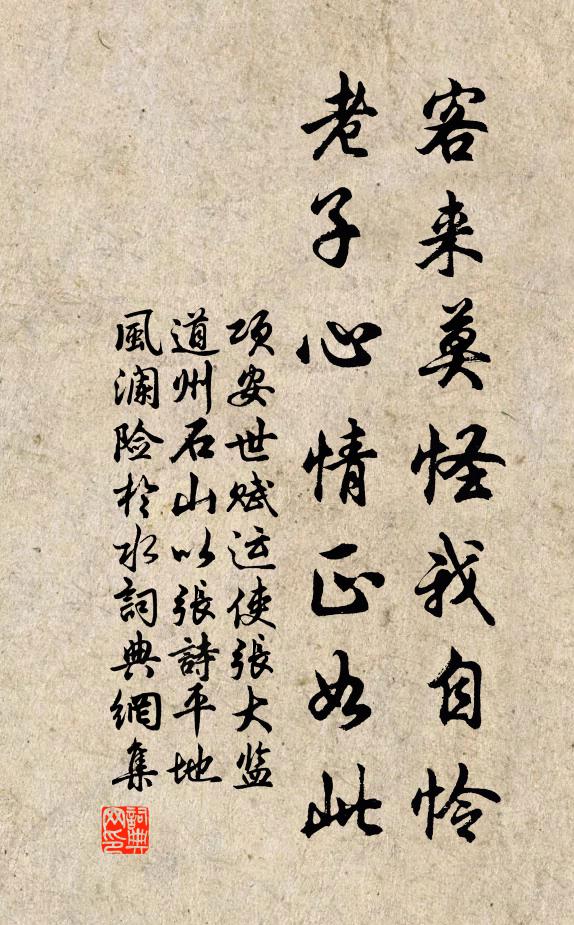 客来莫怪我自怜
老子心情正如此
项安世赋运使張大监
道州石山以張詩平地
風澜险於水詞典網集
詞典网印